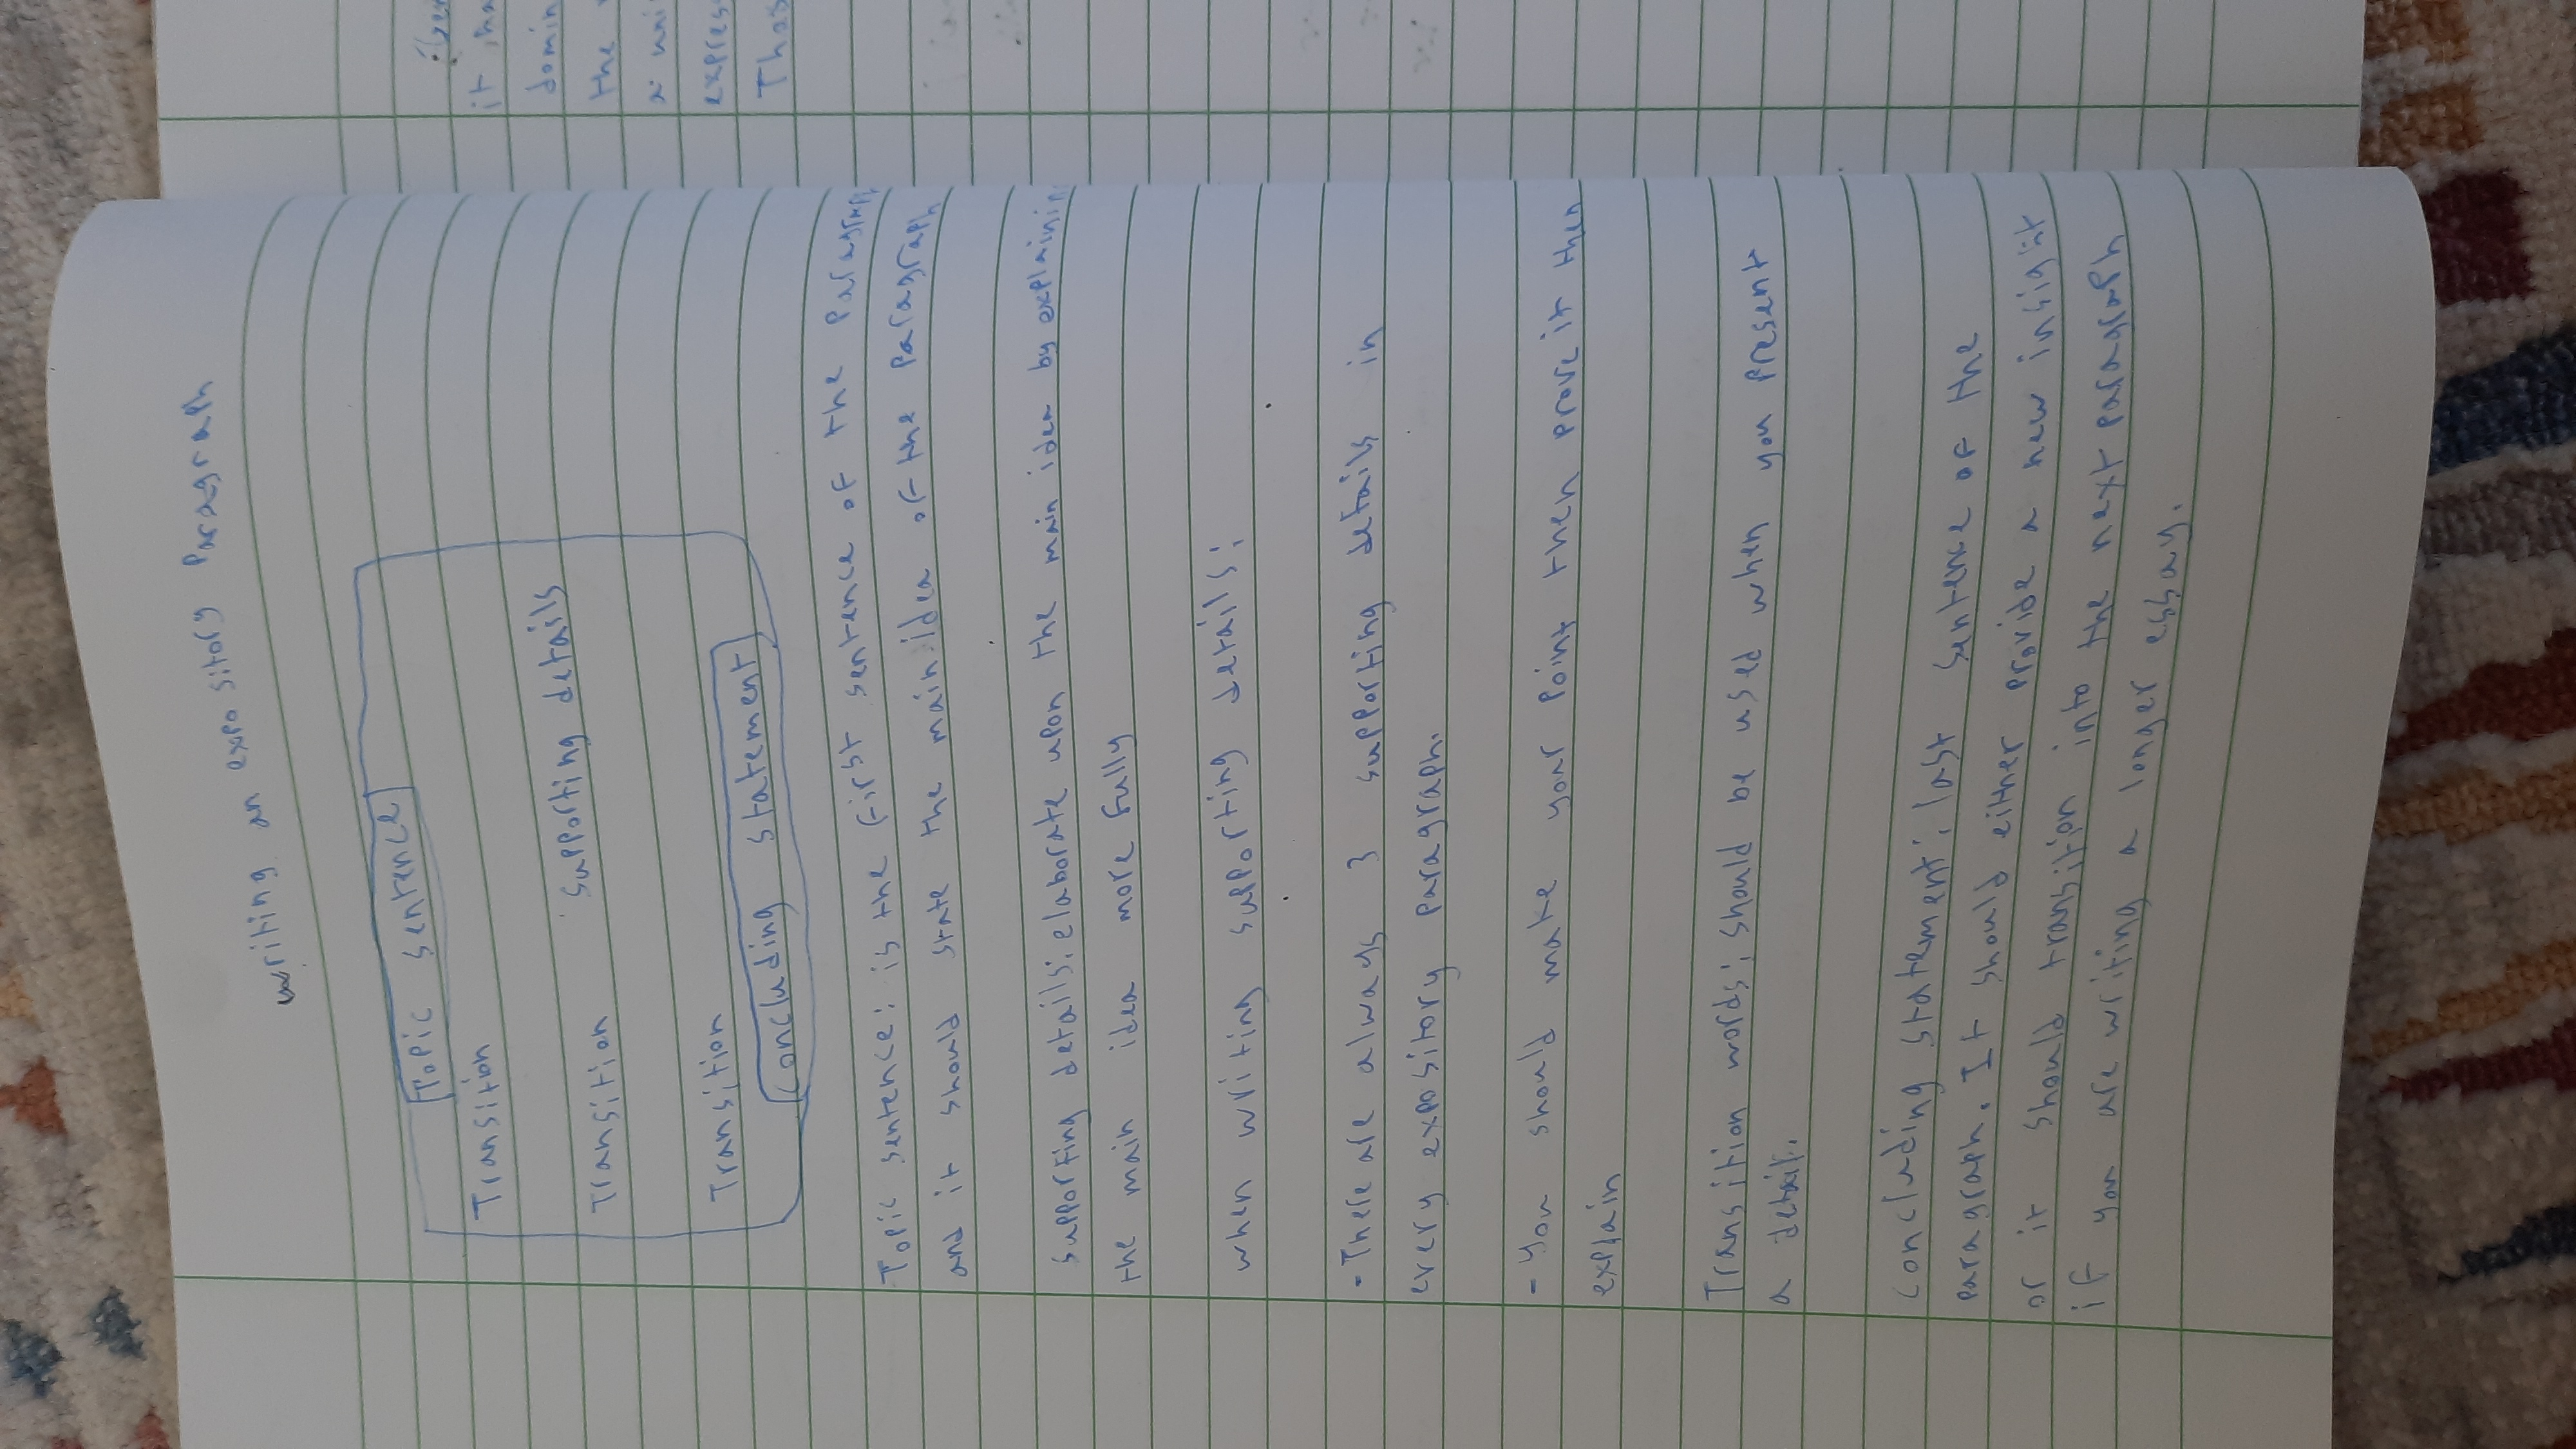 writing an expository Paragraph
Topic sentence
Transition
supporting details
Transition
Transition
concluding statement
Topic sentence: is the first sentence of the Paragraph
and it should state the main idea of the paragraph
supporting details: elaborate upon the main idea by explaining
the main idea more fully
when writing supporting details:
- There are always 3 supporting details in
every expository paragraph.
- You should make your point then prove it then
explain
Transition words: should be used when you present
a detail.
concluding statement: last sentence of the
paragraph. It should either provide a new insight
or it should transition into the next paragraph
if you are writing a longer essay.
it
the
a